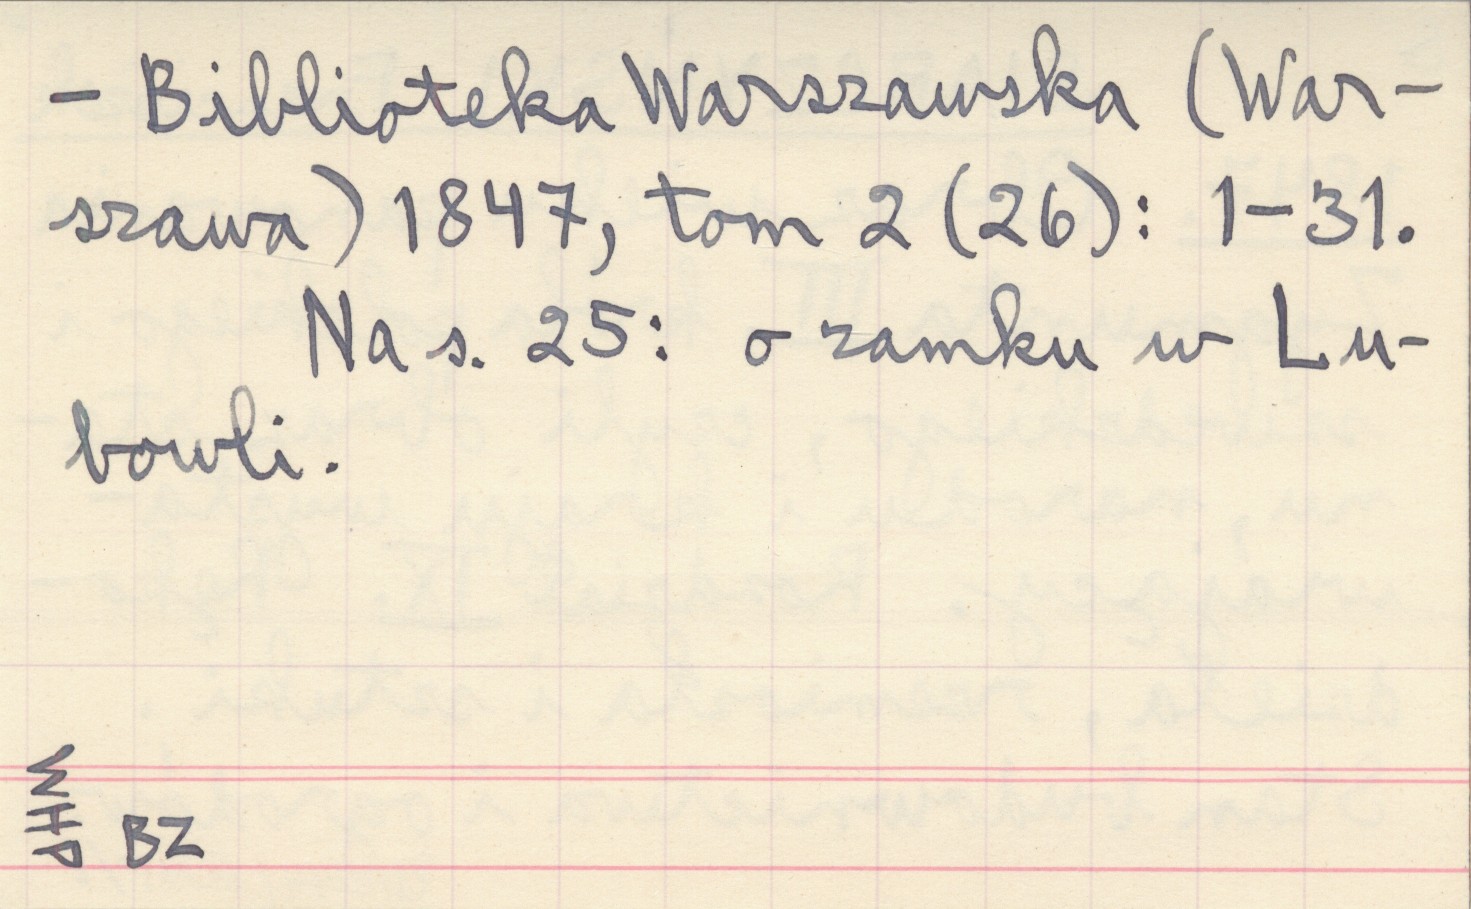 - Biblioteka Warszawska (War-
szawa) 1847, tom 2 (26): 1-31.
Na s. 25: o zamku w Lu-
bowli.
PHW
BZ